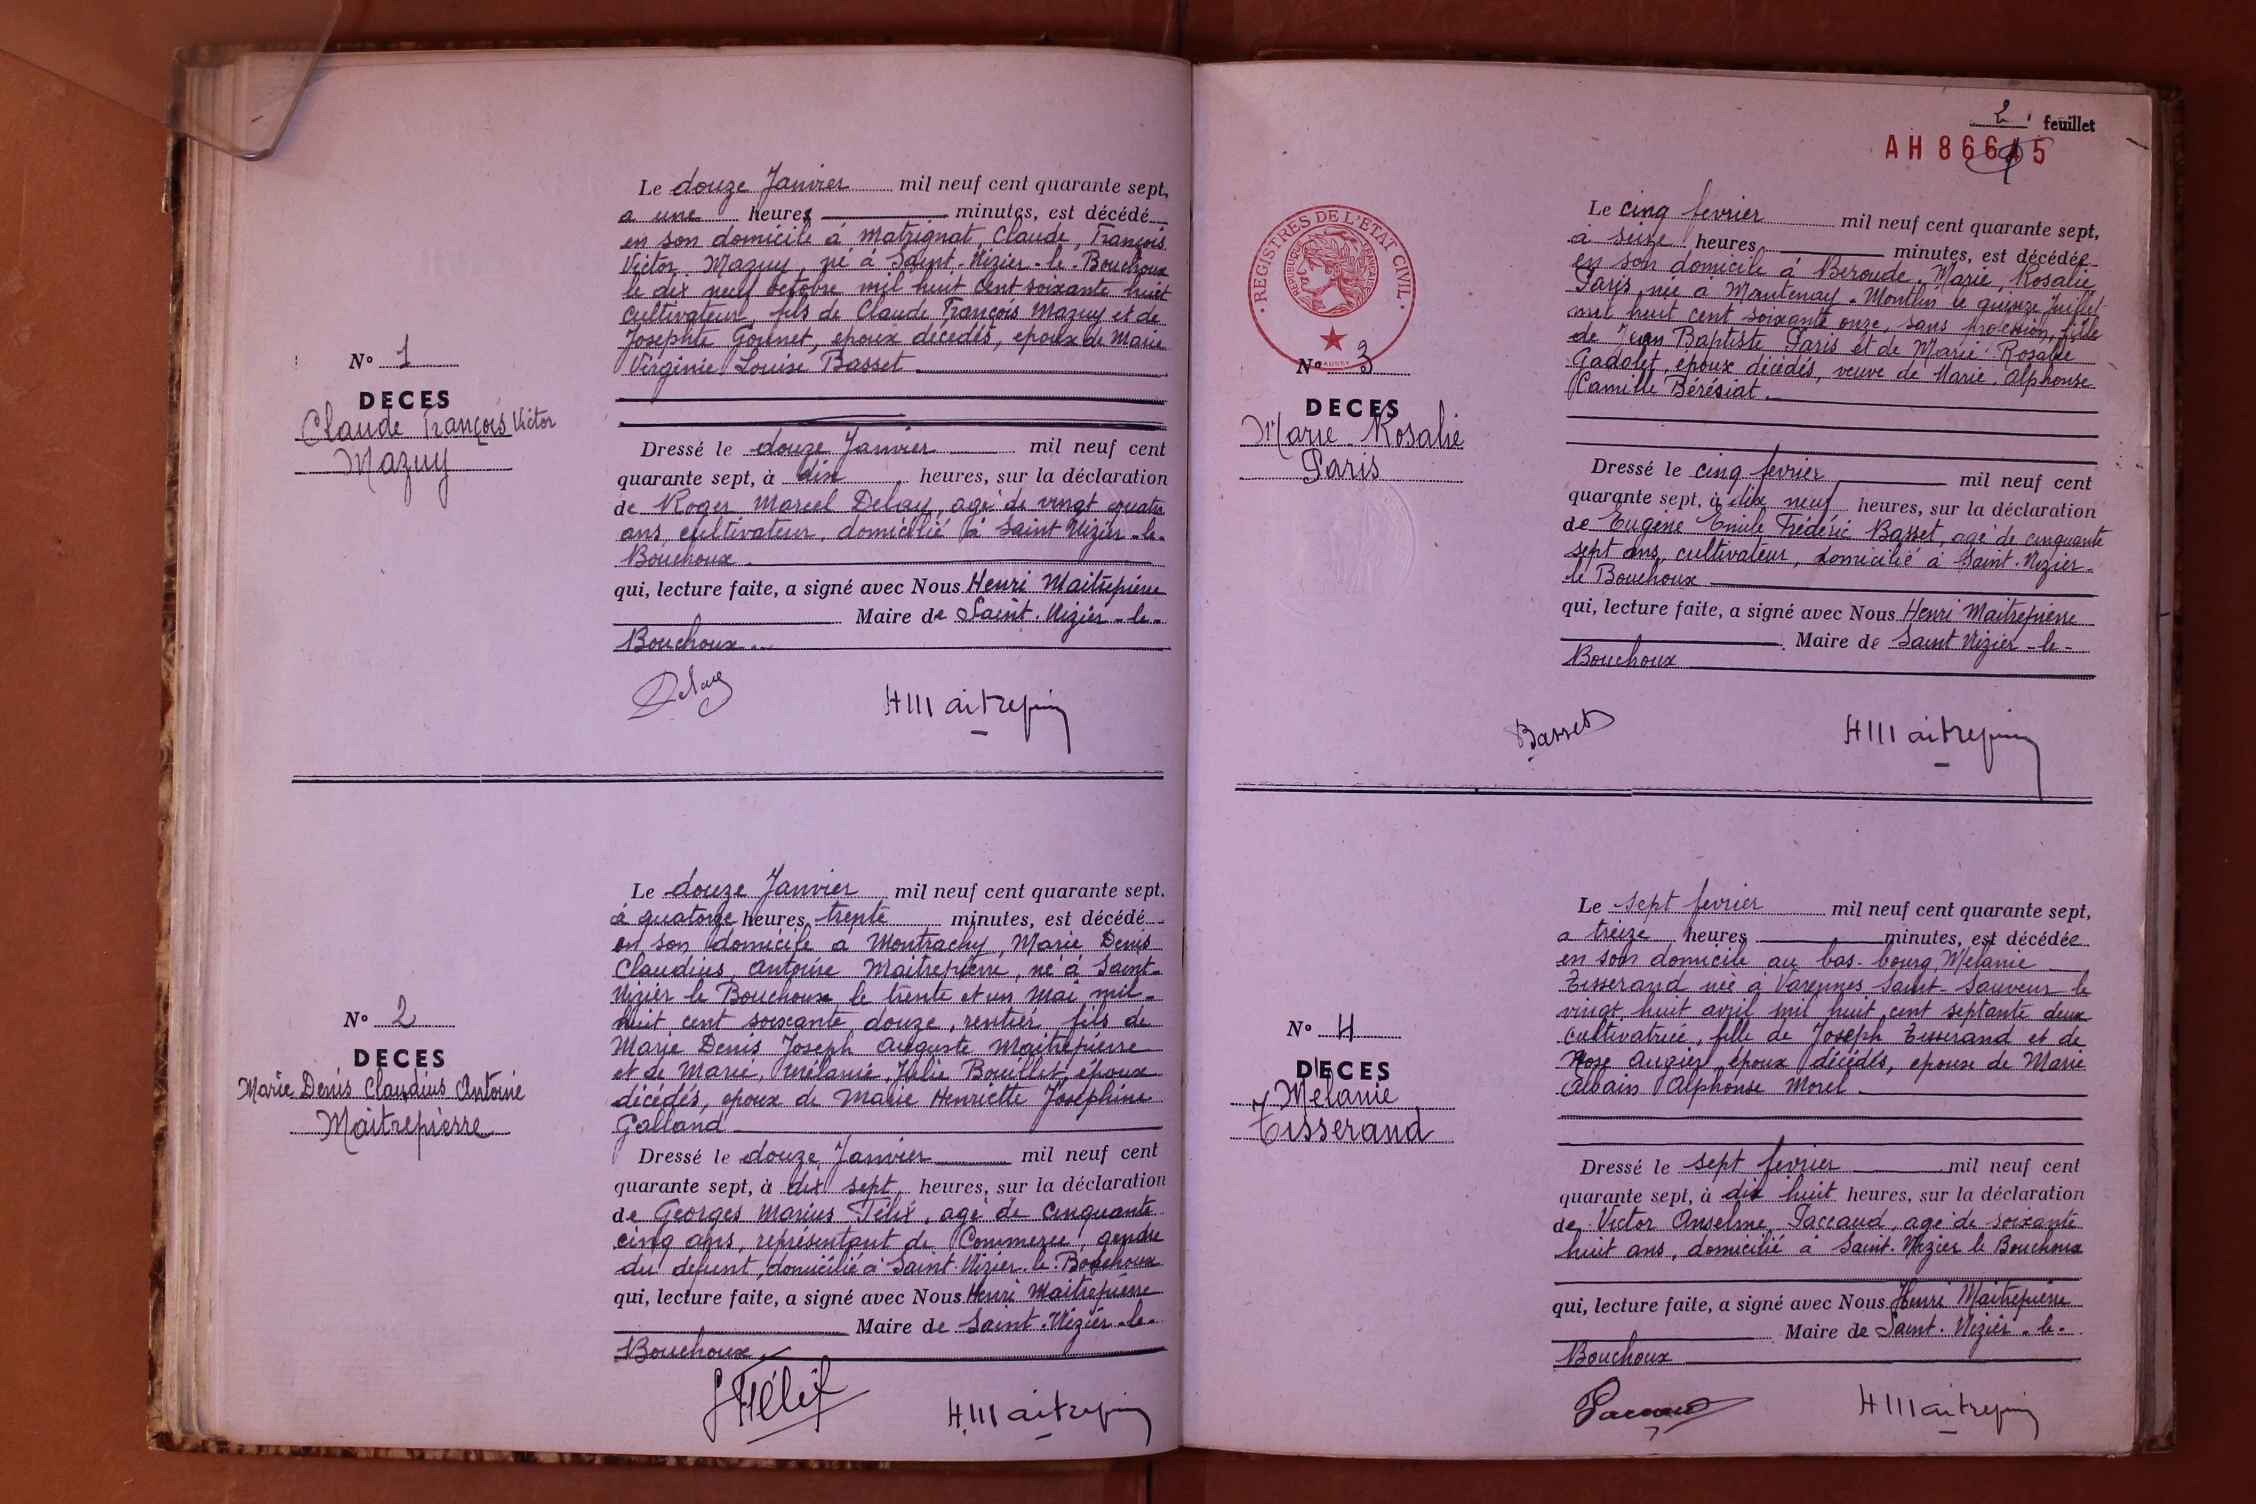 Le douze Janvier mil neuf cent quarante sept,
a une heures minutes, est décédé
en son domicile à Matrignat, Claude, François
Victor Mazuy, né à Saint-Nizier-le-Bouchoux
le dix neuf octobre mil huit cent soixante huit
cultivateur, fils de Claude François Mazuy et de
Josephte Gonnet, époux décédés, époux de Marie
Virginie Louise Basset
N° 1
DECES
Claude François Victor
Mazuy
Dressé le douze Janvier mil neuf cent
quarante sept, à dix heures, sur la déclaration
de Roger Marcel Delay, agé de vingt quatre
ans, cultivateur, domicilié à Saint Nizier-le-
Bouchoux
qui, lecture faite, a signé avec Nous Henri Maitrepierre
Maire de Saint-Nizier-le-
Bouchoux
Delay
HMaitrepierre
Le douze Janvier mil neuf cent quarante sept.
à quatorze heures, trente minutes, est décédé
en son domicile a Montrachy, Marie Denis
Claudius, Antoine Maitrepierre, né à Saint-
Nizier le Bouchoux le trente et un Mai mil-
huit cent soixante douze, rentier, fils de
Marie Denis Joseph Auguste Maitrepierre
et de Marie, Mélanie, Julie Bouillet, époux
décédés, époux de Marie Henriette Joséphine
Galland
N° 2
DECES
Marie Denis Claudius Antoine
Maitrepierre
Dressé le douze Janvier mil neuf cent
quarante sept, à dix sept heures, sur la déclaration
de Georges Marius Félix, agé de cinquante
cinq ans, représentant de Commerce, gendre
du défunt, domicilié à Saint-Nizier-le-Bouchoux
qui, lecture faite, a signé avec Nous Henri Maitrepierre
Maire de Saint-Nizier-le-
Bouchoux
GFélix
HMaitrepierre
2 feuillet
AH 86645
REGISTRES DE L'ETAT CIVIL
REPUBLIQUE FRANÇAISE
Le cinq fevrier mil neuf cent quarante sept,
à seize heures minutes, est décédée
en son domicile à Beroude, Marie, Rosalie
Paris née à Mantenay-Montlin le quinze Juillet
mil huit cent soixante onze, sans profession, fille
de Jean Baptiste Paris et de Marie Rosalie
Gadolet, époux décédés, veuve de Marie Alphonse
Camille Bérésiat
N° 3
DECES
Marie Rosalie
Paris
Dressé le cinq fevrier mil neuf cent
quarante sept, à dix neuf heures, sur la déclaration
de Eugène Emile Frédéric Basset, agé de cinquante
sept ans, cultivateur, domicilié à Saint-Nizier-
le Bouchoux
qui, lecture faite, a signé avec Nous Henri Maitrepierre
Maire de Saint Nizier-le-
Bouchoux
Basset
HMaitrepierre
Le sept fevrier mil neuf cent quarante sept,
a treize heures minutes, est décédée
en son domicile au bas-bourg, Mélanie
Tisserand née à Varennes Saint-Sauveur le
vingt huit avril mil huit cent septante deux
cultivatrice, fille de Joseph Tisserand et de
Rose Augier époux décédés, épouse de Marie
Albain Alphonse Morel
N° 4
DECES
Mélanie
Tisserand
Dressé le sept fevrier mil neuf cent
quarante sept, à dix huit heures, sur la déclaration
de Victor Anselme Paccaud, agé de soixante
huit ans, domicilié à Saint-Nizier le Bouchoux
qui, lecture faite, a signé avec Nous Henri Maitrepierre
Maire de Saint-Nizier-le-
Bouchoux
Paccaud
HMaitrepierre